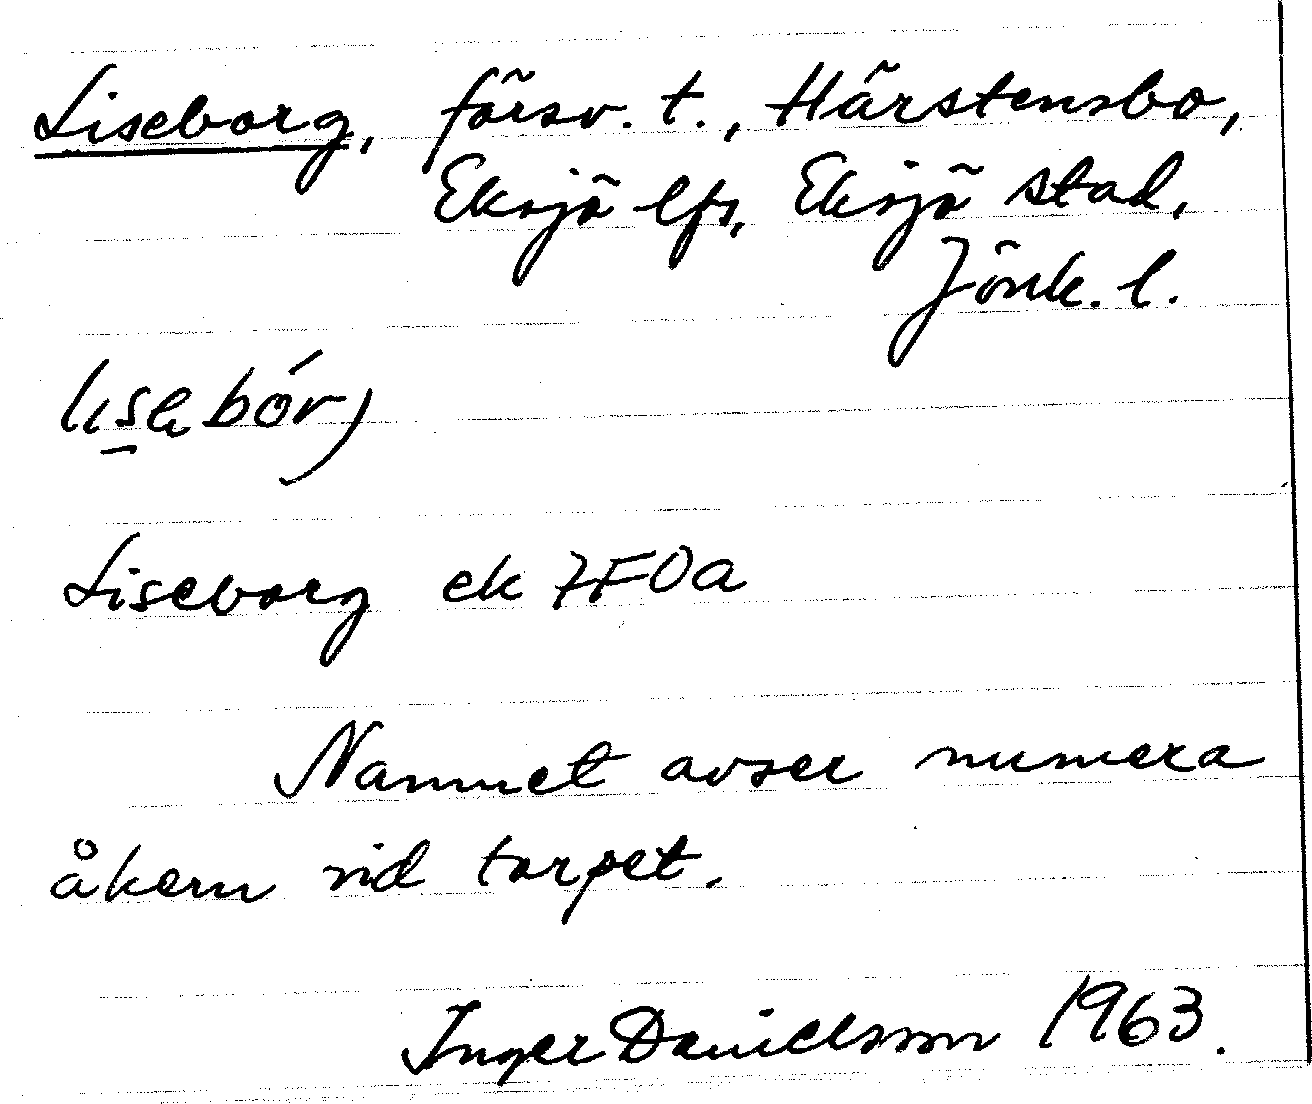 Liseborg, försv. t., Härstensbo,
Eksjö lfs, Eksjö stad,
Jönk. l.
Liseborg ek 7F0a
Namnet avser numera
åkern vid torpet.
Inger Danielsson 1963.